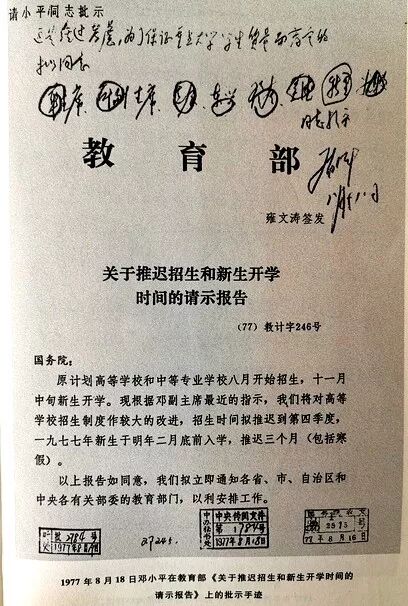 请小平同志批示
这是经过考虑，为了保证重点大学学生质量而商定的
拟同意
主席、主席、同志批示
教育部
雍文涛签发
关于推迟招生和新生开学
时间的请示报告
（77）教计字246号
国务院：
原计划高等学校和中等专业学校八月开始招生，十一月
中旬新生开学。现根据邓副主席最近的指示，我们将对高等
学校招生制度作较大的改进，招生时间拟推迟到第四季度，
一九七七年新生于明年二月底前入学，推迟三个月（包括寒
假）。
以上报告如同意，我们拟立即通知各省、市、自治区和
中央各有关部委的教育部门，以利安排工作。
1784号
1977年8月
中办秘书处
中央传阅文件
第1784号
1977年8月18日
2915号
77年8月16日
1977年8月18日邓小平在教育部《关于推迟招生和新生开学时间的
请示报告》上的批示手迹